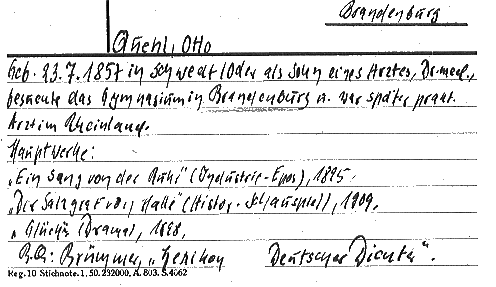 Brandenburg
Quehl, Otto
Geb. 23.7.1857 in Schwedt/Oder als Sohn eines Arztes, Dr. med.,
besuchte das Gymnasium in Brandenburg u. war später prakt.
Arzt im Rheinland.
Hauptwerke:
„Ein Sang von der Ruhr" (Industrie-Epos), 1895.
„Der Salzgraf von Halle" (Histor. Schauspiel), 1909.
„Glück" (Drama), 1898.
Brümmer, „Lexikon Deutscher Dichter".
Reg. 10 Stichnote. 1, 50. 232000. A. 803. S. 4662